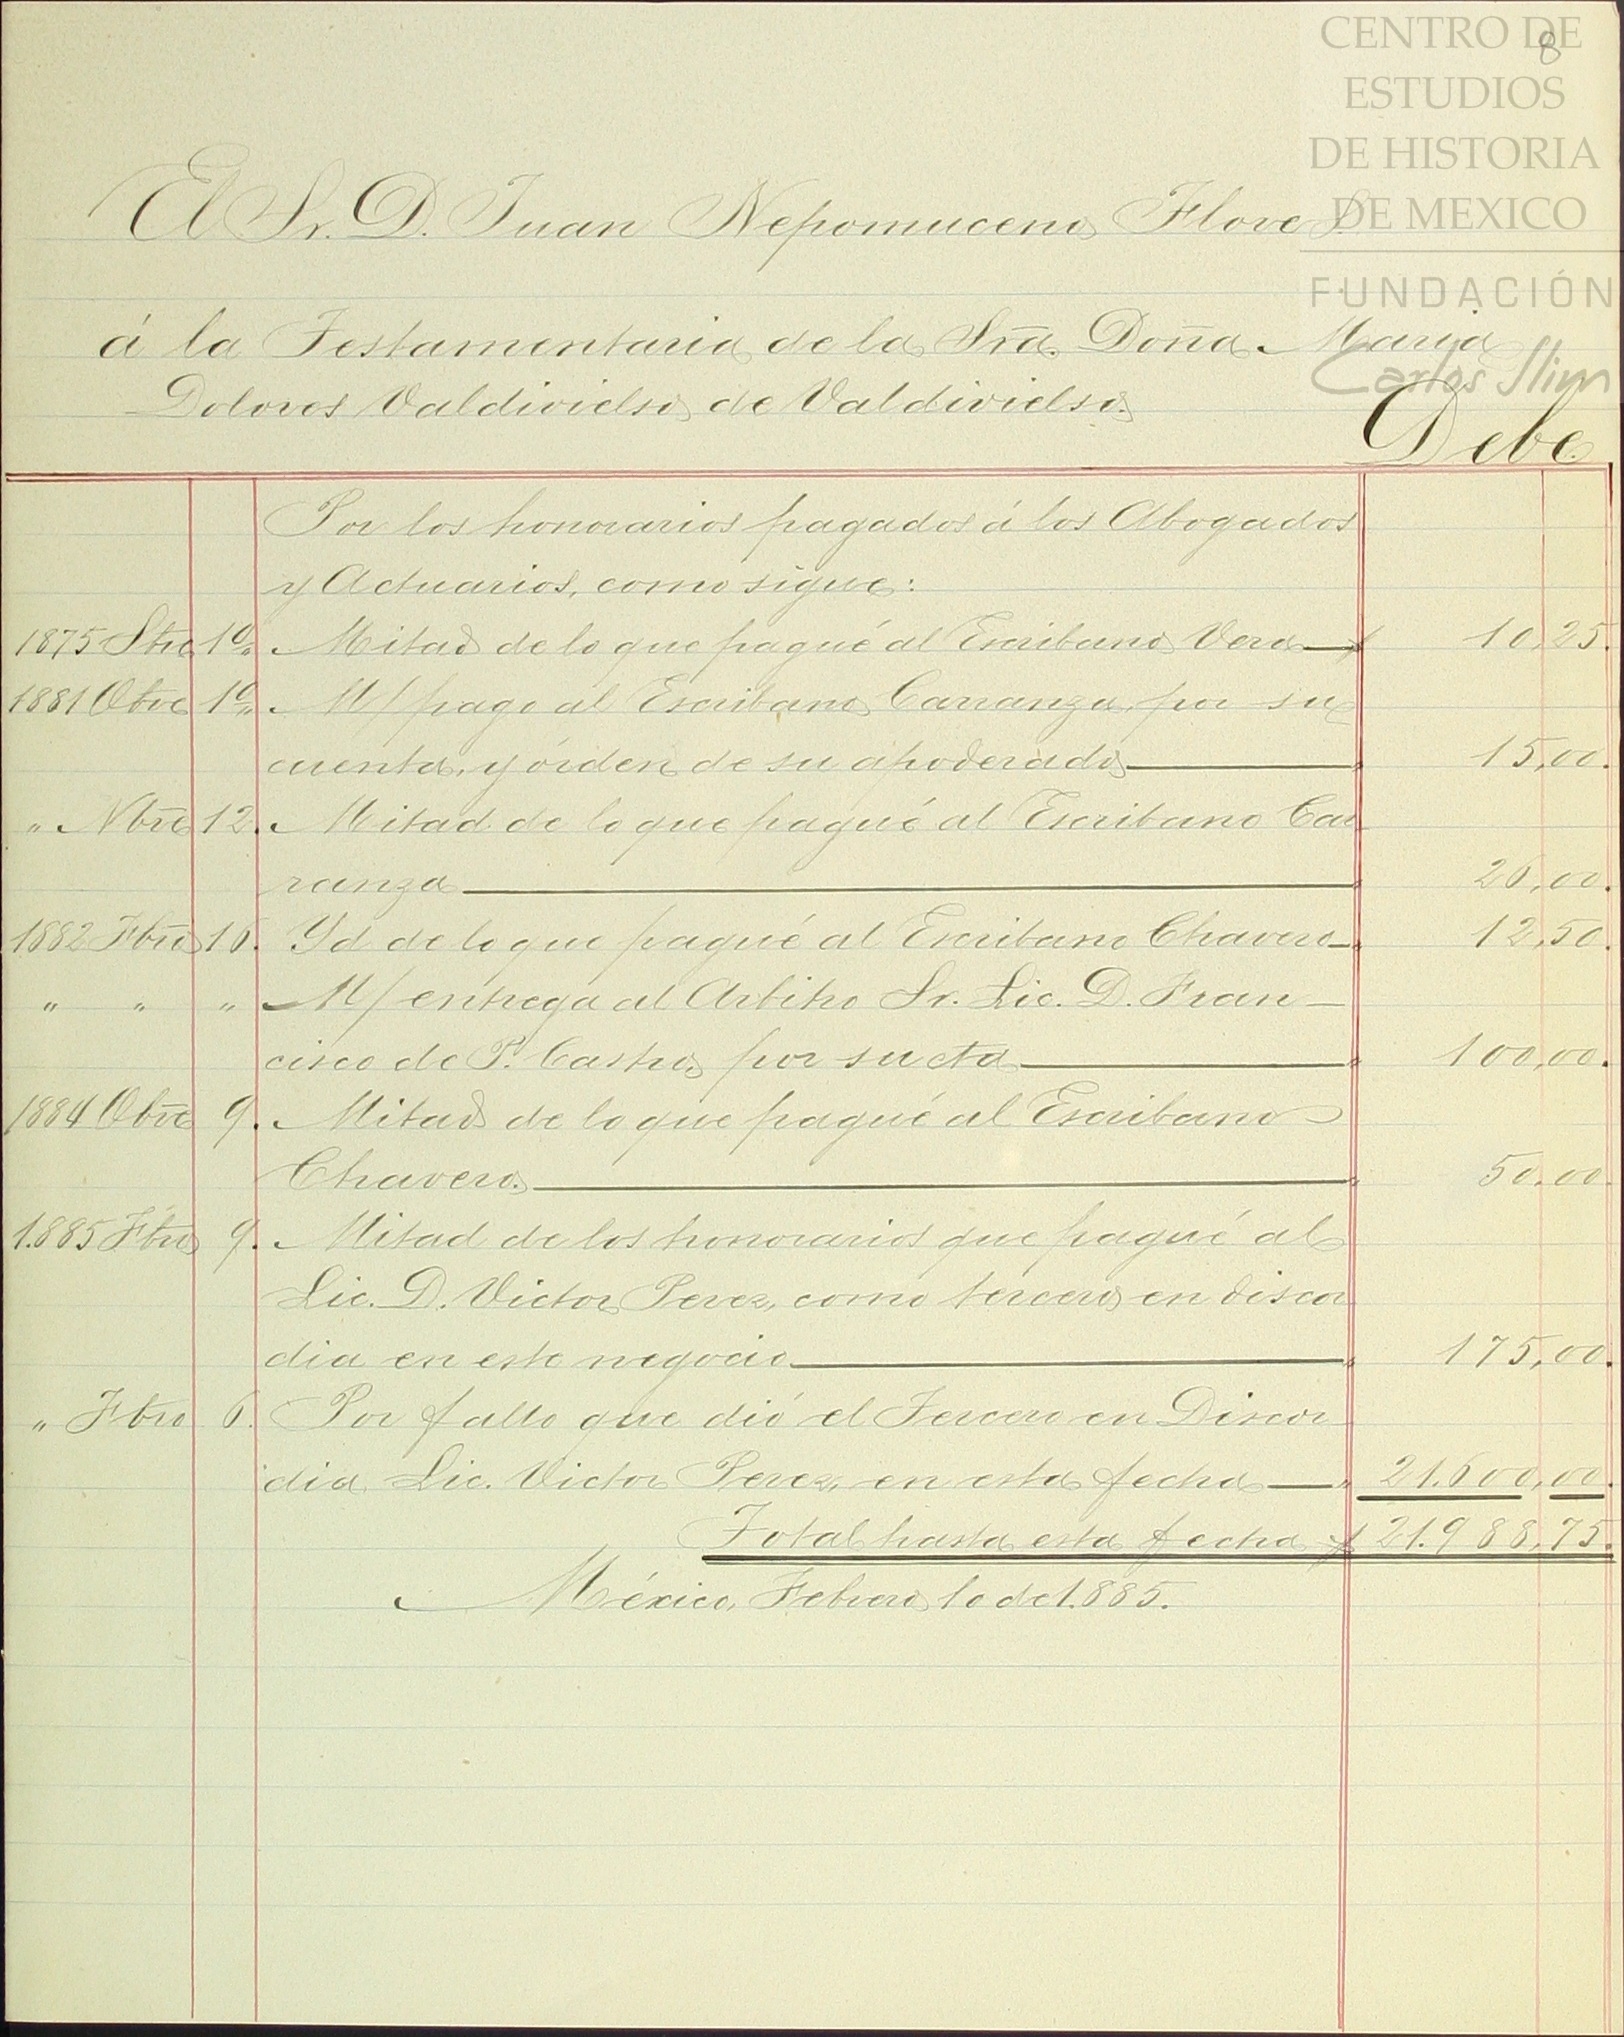 CENTRO DE
ESTUDIOS
DE HISTORIA
DE MEXICO
FUNDACIÓN
Carlos Slim
8
El Sr. D. Juan Nepomuceno Flores
á la Testamentaria de la Srã. Doña Maria
Dolores Valdivielso de Valdivielso.
Debe
Por los honorarios pagados á los Abogados
y Actuarios, como sigue:
1875 Stre 1o. Mitad de lo que pagué al Escribano Vera $ 10,25.
1881 Obre 1o. M/ pago al Escribano Carranza, por su
cuenta, y órden de su apoderado " 15,00.
" Nbre 12. Mitad de lo que pagué al Escribano Car
ranza " 26,00.
1882 Fbro 16. Yd de lo que pagué al Escribano Chavero " 12,50.
" " " M/ entrega al Arbitro Sr. Lic. D. Fran-
cisco de P. Castro, por su cta " 100,00.
1884 Obre 9. Mitad de lo que pagué al Escribano
Chavero. " 50,00
1.885 Fbro 9. Mitad de los honorarios que pagué al
Lic. D. Victor Perez, como tercero en discor
dia en este negocio " 175,00.
" Fbro 6. Por fallo que dió el Tercero en Discor
dia Lic. Victor Perez, en esta fecha " 21.600,00.
Total hasta esta fecha $ 21.988,75.
México, Febrero 10 de 1.885.